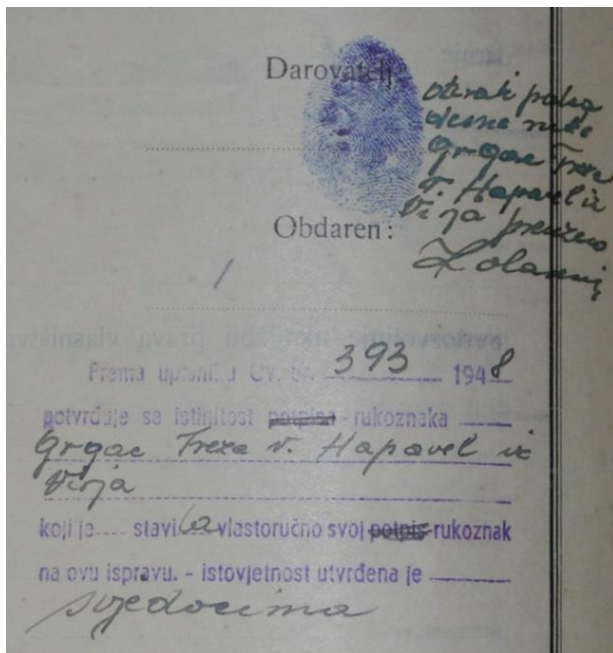 Darovatelj:
otisak palca
desne ruke
Grgac Treze
r. Hapavel iz
Virja
Obdaren:
Prema upisniku Ov. br. 393 1948
potvrđuje se istinitost potpisa - rukoznaka
Grgac Treza r. Hapavel iz
Virja
koji je stavila vlastoručno svoj potpis-rukoznak
na ovu ispravu. - istovjetnost utvrđena je
svjedocima